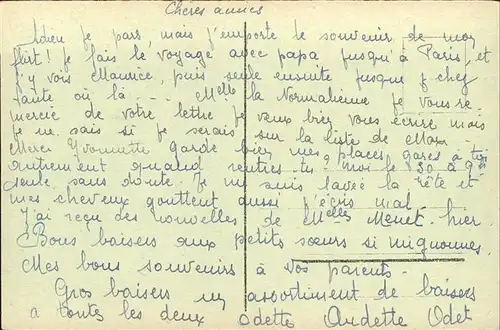 Chères amies
Adieu je pars, mais j'emporte le souvenir de mon
flirt! Je fais le voyage avec papa jusqu'à Paris, et
j'y vois Maurice, puis seule ensuite jusque chez
tante où là .... Melle la Normalienne je vous re-
mercie de votre lettre. Je veux bien vous écrire mais
je ne sais si je serais sur la liste de Max
Merci Yvonnette garde bien mes places gares à toi
autrement quand rentres-tu - moi le 30 à 9h
seule sans doute. Je me suis lavée la tête et
mes cheveux gouttent aussi j'écris mal.
J'ai reçu des nouvelles de Melles Menet hier
Bons baisers aux petits sœurs si mignonnes.
Mes bons souvenirs à vos parents.
Gros baisers un assortiment de baisers
à toutes les deux Odette Audette Odet